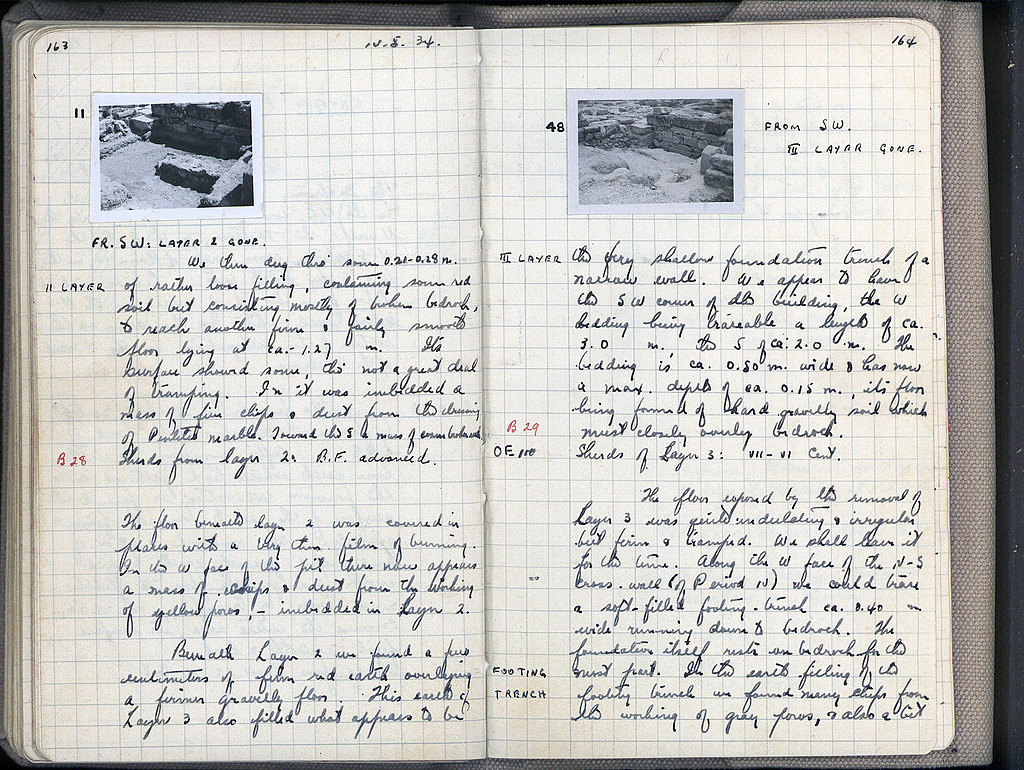 163
IV.5.34.
11
FR. SW: LAYER 2 GONE.
We then dug thro' some 0.20-0.28 m.
II LAYER
of rather loose filling, containing some red
soil but consisting mostly of broken bedrock,
to reach another firm & fairly smooth
floor lying at ca. - 1.27 m. Its
surface showed some, tho' not a great deal
of tramping. In it was imbedded a
mass of fine chips & dust from the dressing
of Pentelic marble. Toward the S a mass of
B 28
Sherds from layer 2: B.F. advanced.
The floor beneath layer 2 was covered in
places with a very thin film of burning.
In the W face of the pit there now appears
a mass of chips & dust from the working
of yellow poros, - imbedded in Layer 2.
Beneath Layer 2 we found a few
centimeters of firm red earth overlying
a firmer gravelly floor. This earth of
Layer 3 also filled what appears to be
164
48
FROM SW.
III LAYER GONE.
III LAYER
the very shallow foundation trench of a
narrow wall. We appear to have
the SW corner of the building, the W
bedding being traceable a length of ca.
3.0 m., the S of ca. 2.0 m. The
bedding is ca. 0.50 m. wide & has now
a max. depth of ca. 0.15 m., its floor
being formed of hard gravelly soil which
B 29
must closely overly bedrock.
OE
Sherds of Layer 3: VII-VI Cent.
The floor exposed by the removal of
Layer 3 was quite undulating & irregular
but firm & tramped. We shall leave it
for the time. Along the W face of the N-S
cross-wall (of Period IV) we could trace
a soft-filled footing-trench ca. 0.40 m
wide running down to bedrock. The
foundation itself rests on bedrock for the
FOOTING
TRENCH
most part. In the earth filling of the
footing trench we found many chips from
the working of gray poros, & also a bit